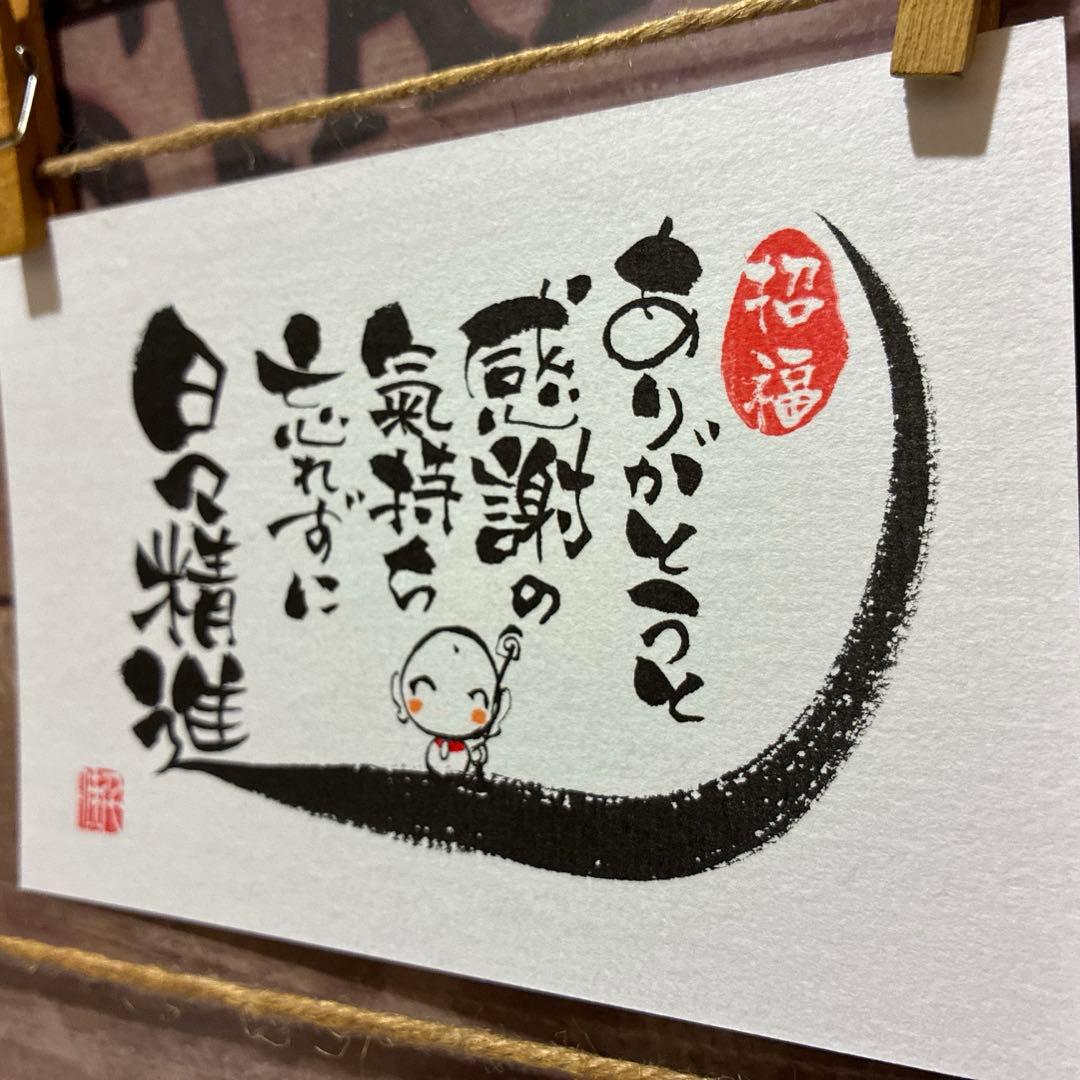 招福
ありがとうと
感謝の
氣持ち
忘れずに
日々精進